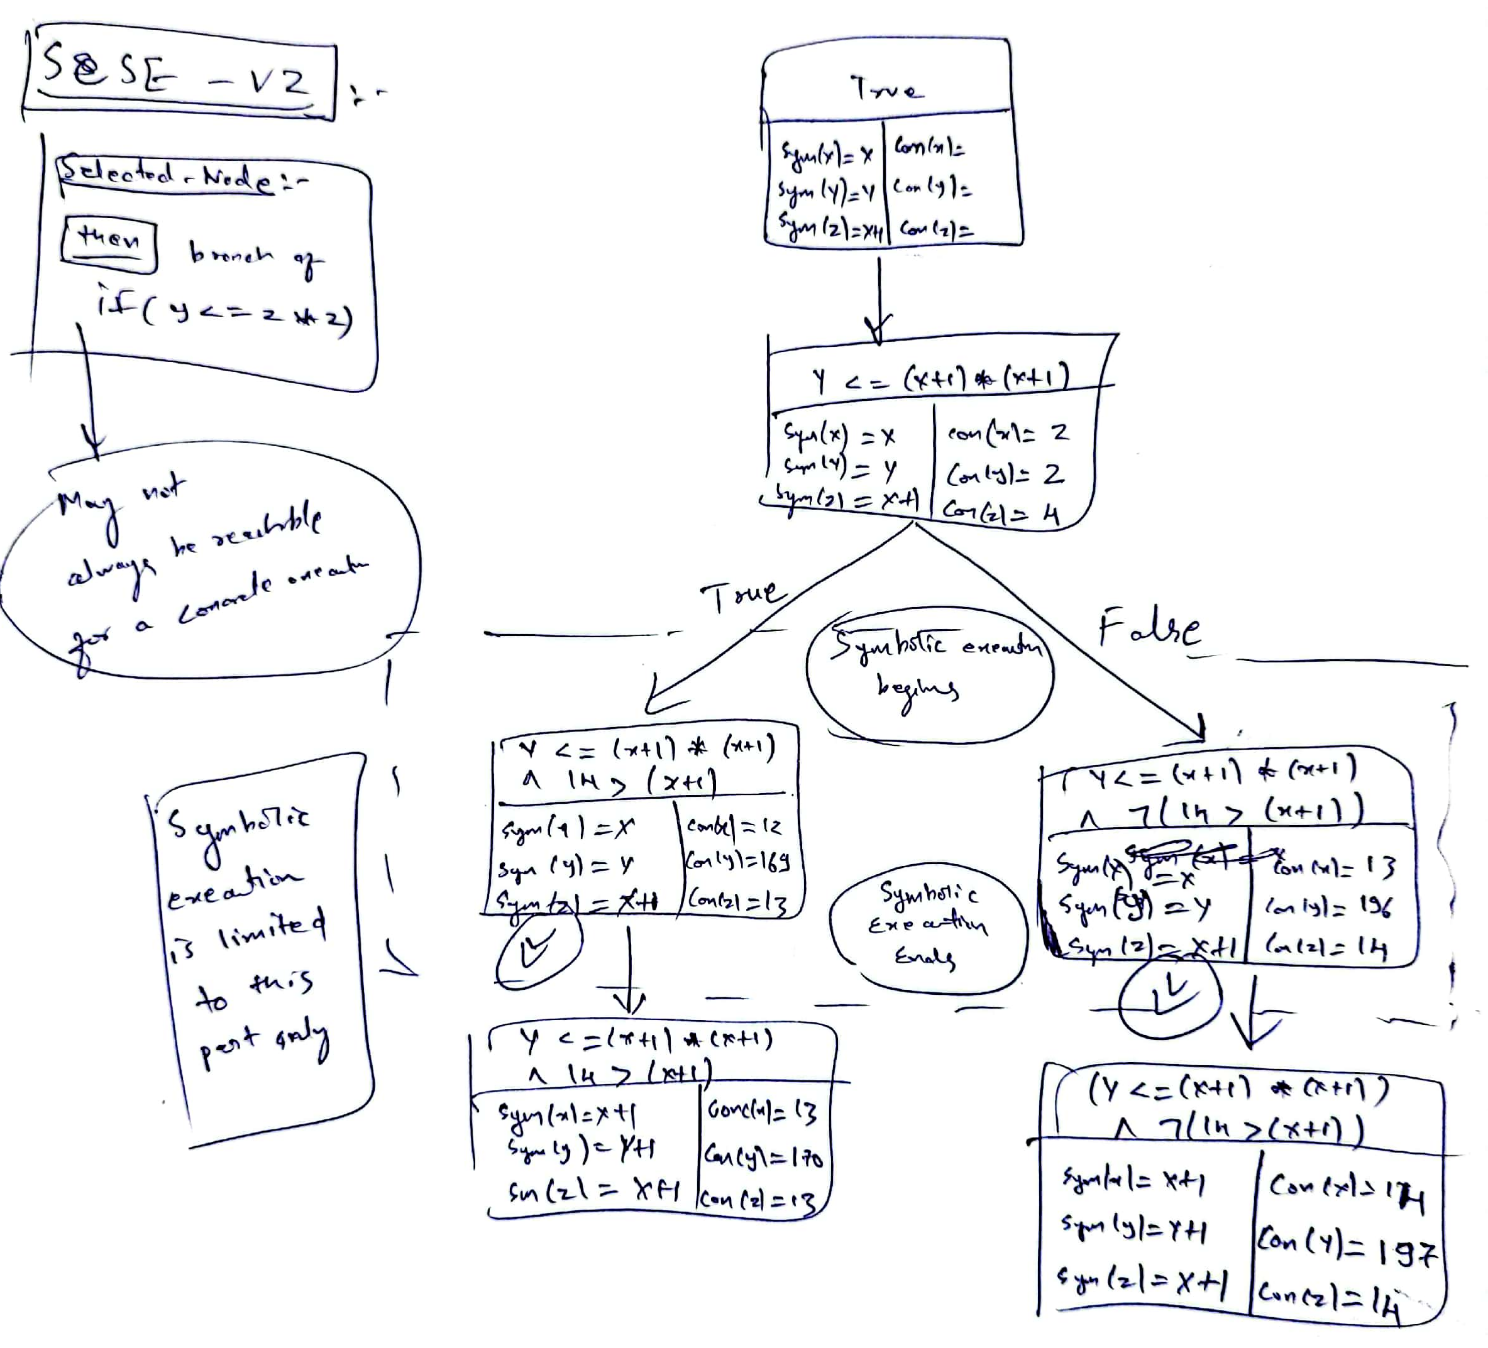 SeSE - V2 :-
Selected-Node :-
then branch of
if( y <= z * z)
May not
always be reachable
for a concrete execution
Symbolic
execution
is limited
to this
part only
True
Sym(x)= X Con(x)=
Sym(y)=Y Con(y)=
Sym(z)=X+1 Con(z)=
Y <= (X+1) * (X+1)
Sym(x) = X con(x)= 2
Sym(y) = Y Con(y)= 2
Sym(z) = X+1 Con(z)= 4
True
False
Symbolic execution
begins
Y <= (X+1) * (X+1)
∧ 14 > (X+1)
Sym(x) = X con(x) = 12
Sym(y) = Y Con(y)=169
Sym(z) = X+1 Con(z)=13
Y <= (X+1) * (X+1)
∧ ¬(14 > (X+1))
Sym(x) = X Con(x)= 13
Sym(y) = Y Con(y)= 196
Sym(z) = X+1 Con(z)= 14
Symbolic
Execution
Ends
Y <=(X+1) * (X+1)
∧ 14 > (X+1)
Sym(x)=X+1 Conc(x)= 13
Sym(y)= Y+1 Con(y)=170
Sm(z)= X+1 Con(z)=13
(Y <=(X+1) * (X+1))
∧ ¬(14 >(X+1))
Sym(x)= X+1 Con(x)= 14
Sym(y)= Y+1 Con(y)= 197
Sym(z)= X+1 Con(z)= 14